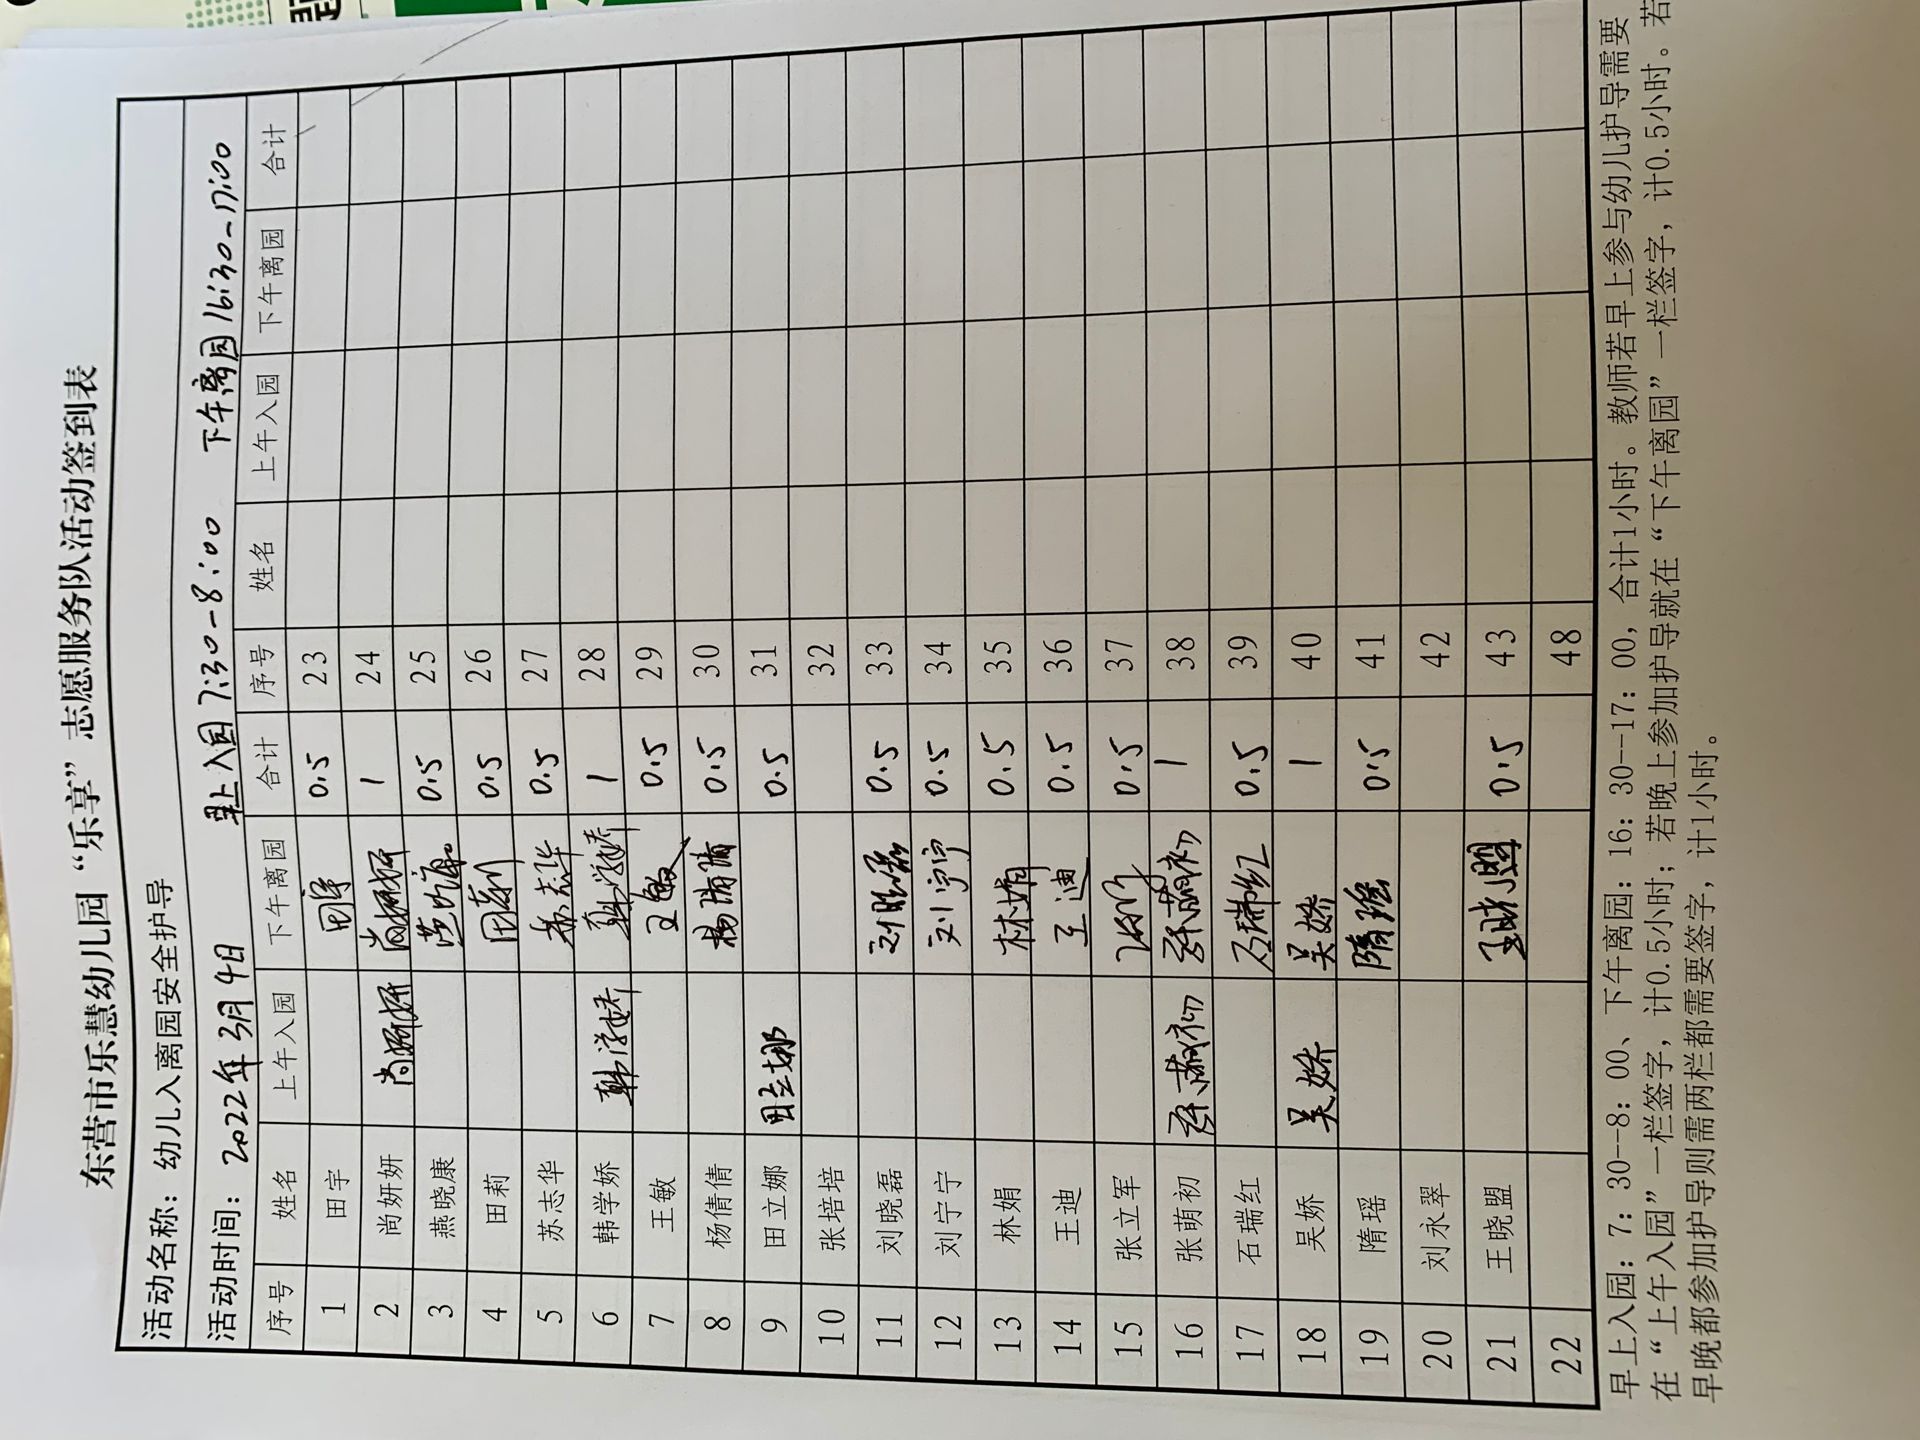 东营市乐慧幼儿园“乐享”志愿服务队活动签到表
活动名称：幼儿入离园安全护导
活动时间：2022年3月4日 早上入园7:30-8:00 下午离园16:30-17:00
序号 姓名 上午入园 下午离园 合计 序号 姓名 上午入园 下午离园 合计
1 田宇 田宇 0.5 23
2 尚妍妍 尚妍妍 尚妍妍 1 24
3 燕晓康 0.5 25
4 田莉 田莉 0.5 26
5 苏志华 苏志华 0.5 27
6 韩学娇 韩学娇 韩学娇 1 28
7 王敏 王敏 0.5 29
8 杨倩倩 杨倩倩 0.5 30
9 田立娜 田立娜 0.5 31
10 张培培 32
11 刘晓磊 刘晓磊 0.5 33
12 刘宁宁 刘宁宁 0.5 34
13 林娟 林娟 0.5 35
14 王迪 王迪 0.5 36
15 张立军 0.5 37
16 张萌初 张萌初 张萌初 1 38
17 石瑞红 石瑞红 0.5 39
18 吴娇 吴娇 吴娇 1 40
19 隋瑶 隋瑶 0.5 41
20 刘永翠 42
21 王晓盟 王晓盟 0.5 43
22 48
早上入园：7：30--8：00、下午离园：16：30--17：00，合计1小时。教师若早上参与幼儿护导需要
在“上午入园”一栏签字，计0.5小时；若晚上参加护导就在“下午离园”一栏签字，计0.5小时。若
早晚都参加护导则需两栏都需要签字，计1小时。